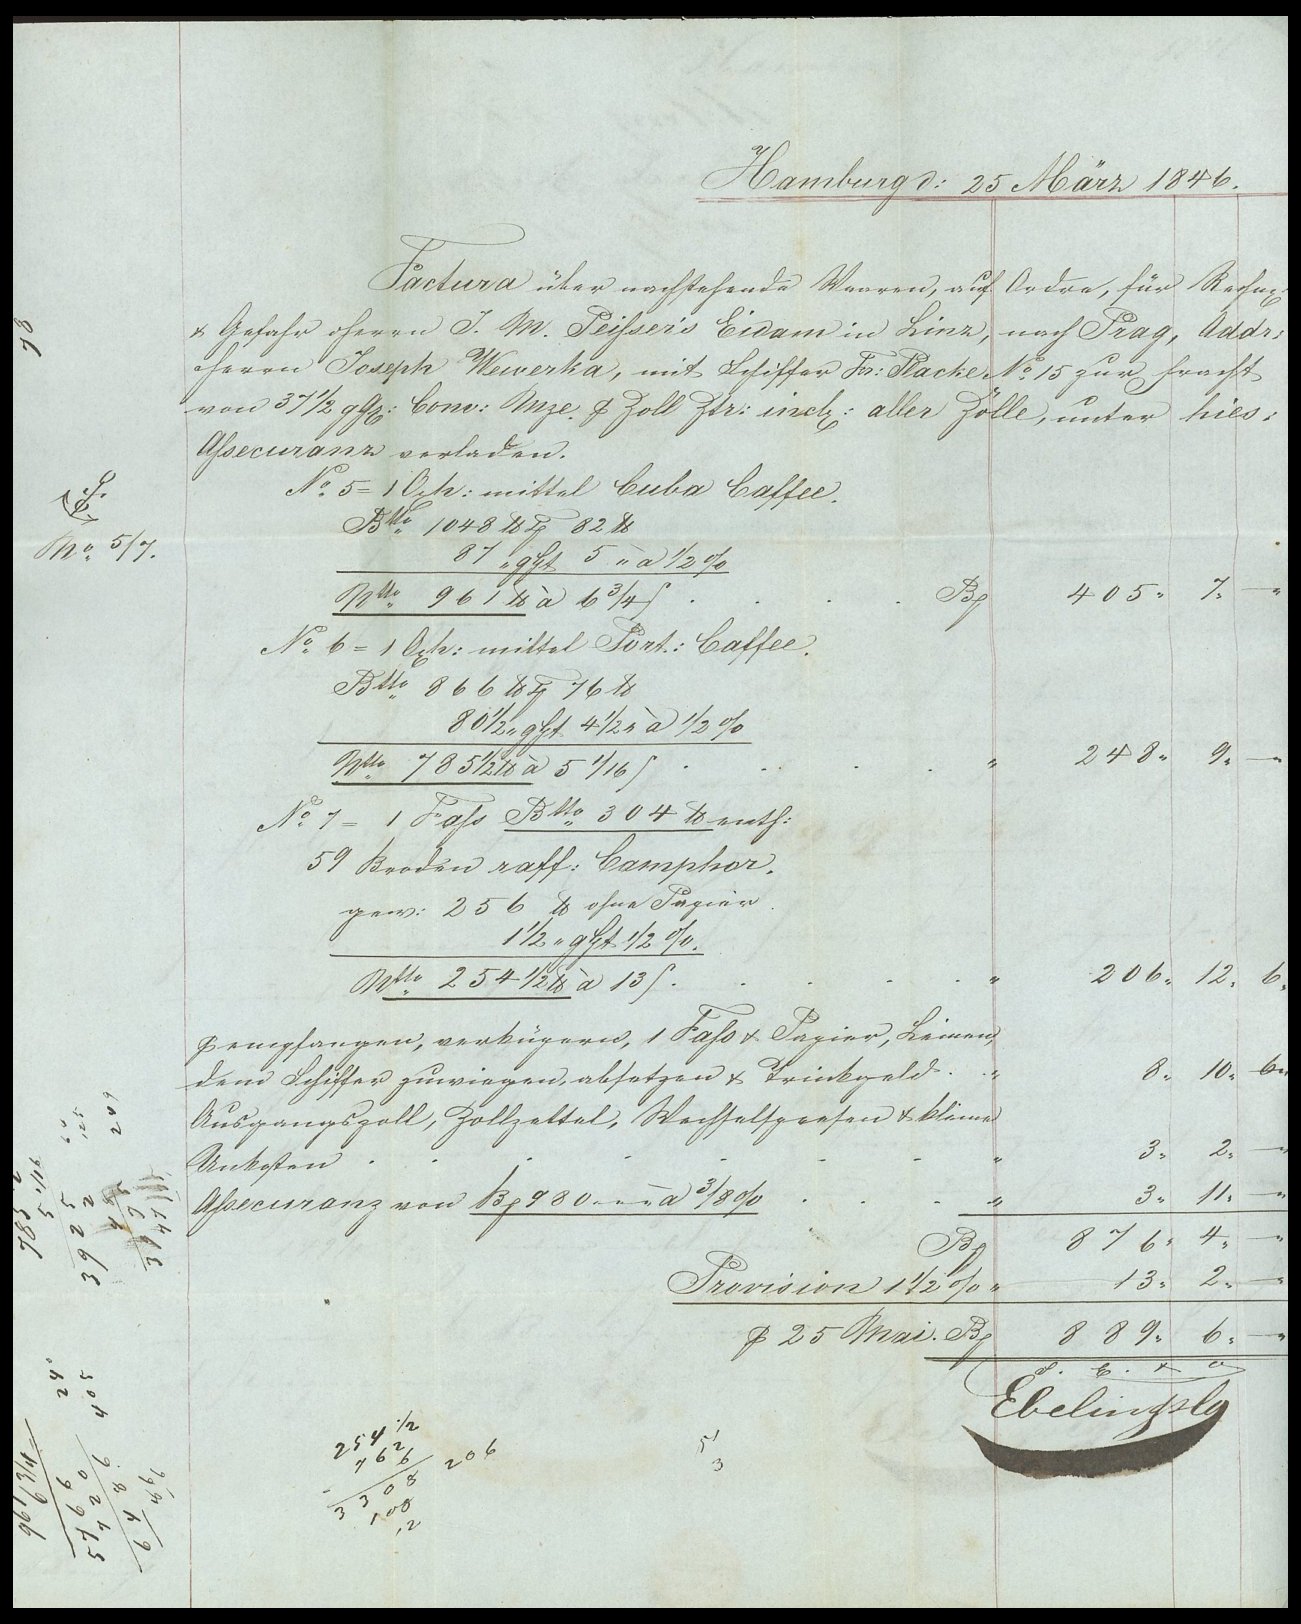 Hamburg d: 25 März 1846.
Factura über nachstehende Waaren, auf Ordre, für Rechng
& Gefahr Herrn J. M. Peisser's Eidam in Linz, nach Prag, Addr:
Herrn Joseph Wewerka, mit Schiffer Fr: Placke No 15 zur Fracht
von 37 1/2 gGr: Conv: Mze. ₽ Zoll Ztr: incl: aller Zölle, unter hies:
Assecuranz verladen.
No 5 = 1 Oxh: mittel Cuba Caffee.
No 5/7.
Btto 1048 ℔ T 82 ℔
87 " gGt 5 " à 1/2 %
Ntto 961 ℔ à 6 3/4 ß . . . . B 405 " 7 " — "
No 6 = 1 Oxh: mittel Port: Caffee.
Btto 866 ℔ T 76 ℔
80 1/2 " gGt 4 1/2 " à 1/2 %
Ntto 785 1/2 ℔ à 5 1/16 ß . . . . " 248 " 9 " — "
No 7 = 1 Fass Btto 304 ℔ enth:
59 Broden raff: Camphor.
gew: 256 ℔ ohne Papier
1 1/2 " gGt 1/2 %.
Ntto 254 1/2 ℔ à 13 ß . . . . . " 206 " 12 " 6 "
₽ empfangen, verküpern, 1 Fass & Papier, Leinen,
dem Schiffer zuwiegen, absetzen & Trinkgeld . . " 8 " 10 " 6 "
Ausgangszoll, Zollzettel, Wechselspesen & kleine
Unkosten . . . . . . . " 3 " 2 " — "
Assecuranz von B 980 " — " à 3/8 % . . . " 3 " 11 " — "
B 876 " 4 " — "
Provision 1 1/2 % " 13 " 2 " — "
₽ 25 Mai. B 889 " 6 " — "
S. E. & O
78
254 1/2
206
3308
108
12
5
3
785 1/2
5 1/16
3925
209
961
6 3/4
5766